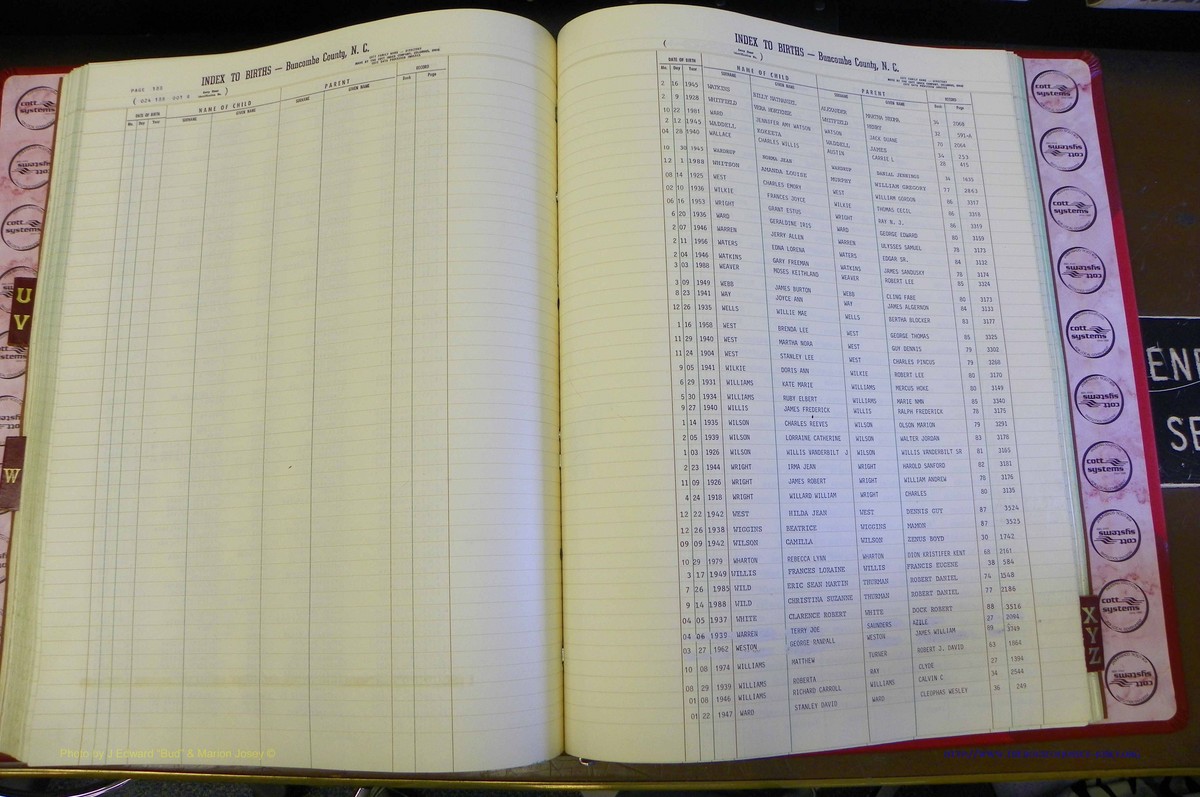 INDEX TO BIRTHS — Buncombe County, N. C.
PAGE
DATE OF BIRTH NAME OF CHILD PARENT RECORD
No. Day Year SURNAME GIVEN NAME SURNAME GIVEN NAME Book Page
INDEX TO BIRTHS — Buncombe County, N. C.
DATE OF BIRTH NAME OF CHILD PARENT RECORD
No. Day Year SURNAME GIVEN NAME SURNAME GIVEN NAME Book Page
2 16 1945 WATKINS
2 9 1928 WHITFIELD
10 22 1981 WARD
2 12 1945 WADDELL
04 28 1940 WALLACE
10 30 1945 WARDROP NORMA JEAN WARDROP DANIAL JENNINGS
12 1 1988 WHITSON AMANDA LOUISE MURPHY WILLIAM GREGORY 77 2863
08 14 1925 WEST CHARLES EMORY WEST WILLIAM GORDON 86 3317
02 10 1936 WILKIE FRANCES JOYCE WILKIE THOMAS CECIL 86
06 16 1953 WRIGHT GRANT ESTUS WRIGHT RAY N. J. 86 3319
6 20 1936 WARD GERALDINE IRIS WARD GEORGE EDWARD 80 3159
2 07 1946 WARREN JERRY ALLEN WARREN ULYSSES SAMUEL 78 3173
2 11 1956 WATERS EDNA LORENA WATERS EDGAR SR. 84 3132
2 04 1946 WATKINS GARY FREEMAN WATKINS JAMES SANDUSKY 78 3174
3 03 1988 WEAVER MOSES KEITHLAND WEAVER ROBERT LEE 85 3324
3 09 1949 WEBB JAMES BURTON WEBB CLING FABE 80 3173
8 23 1941 WAY JOYCE ANN WAY JAMES ALGERNON 84 3133
12 26 1935 WELLS WILLIE MAE WELLS BERTHA BLOCKER 83 3177
1 16 1958 WEST BRENDA LEE WEST GEORGE THOMAS 85 3325
11 29 1940 WEST MARTHA NORA WEST GUY DENNIS 79 3302
11 24 1904 WEST STANLEY LEE WEST CHARLES PINCUS 79 3268
9 05 1941 WILKIE DORIS ANN WILKIE ROBERT LEE 80 3170
6 29 1931 WILLIAMS KATE MARIE WILLIAMS MERCUS HOKE 80 3149
5 30 1934 WILLIAMS RUBY ELBERT WILLIAMS MARIE NMN 85 3340
9 27 1940 WILLIS JAMES FREDERICK WILLIS RALPH FREDERICK 78 3175
1 14 1935 WILSON CHARLES REEVES WILSON OLSON MARION 79 3291
2 05 1939 WILSON LORRAINE CATHERINE WILSON WALTER JORDAN 83 3178
1 03 1926 WILSON WILLIS VANDERBILT J WILSON WILLIS VANDERBILT SR 81 3165
2 23 1944 WRIGHT IRMA JEAN WRIGHT HAROLD SANFORD 82 3181
11 09 1926 WRIGHT JAMES ROBERT WRIGHT WILLIAM ANDREW 78 3176
4 24 1918 WRIGHT WILLARD WILLIAM WRIGHT CHARLES 80 3135
12 22 1942 WEST HILDA JEAN WEST DENNIS GUY 87 3524
12 26 1938 WIGGINS BEATRICE WIGGINS MAMON 87 3525
09 09 1942 WILSON CAMILLA WILSON ZENUS BOYD 30 1742
10 29 1979 WHARTON REBECCA LYNN WHARTON DION KRISTIFER KENT 68 2161
3 17 1949 WILLIS FRANCES LORAINE WILLIS FRANCIS EUGENE 38 584
7 26 1985 WILD ERIC SEAN MARTIN THURMAN ROBERT DANIEL 74 1548
9 14 1988 WILD CHRISTINA SUZANNE THURMAN ROBERT DANIEL 77 2186
04 05 1937 WHITE CLARENCE ROBERT WHITE DOCK ROBERT 88 3516
04 06 1939 WARREN TERRY JOE SAUNDERS AZZLE 27 2084
03 27 1962 WESTON GEORGE RANDALL WESTON JAMES WILLIAM 89
10 08 1974 WILLIAMS MATTHEW TURNER ROBERT J. DAVID 63 1864
08 29 1939 WILLIAMS ROBERTA RAY CLYDE 27 1394
01 08 1946 WILLIAMS RICHARD CARROLL WILLIAMS CALVIN C 34 2544
01 22 1947 WARD STANLEY DAVID WARD CLEOPHAS WESLEY 36 249
U
V
W
X
Y
Z
cott systems
Photo by J Edward "Bud" & Marion Josey ©